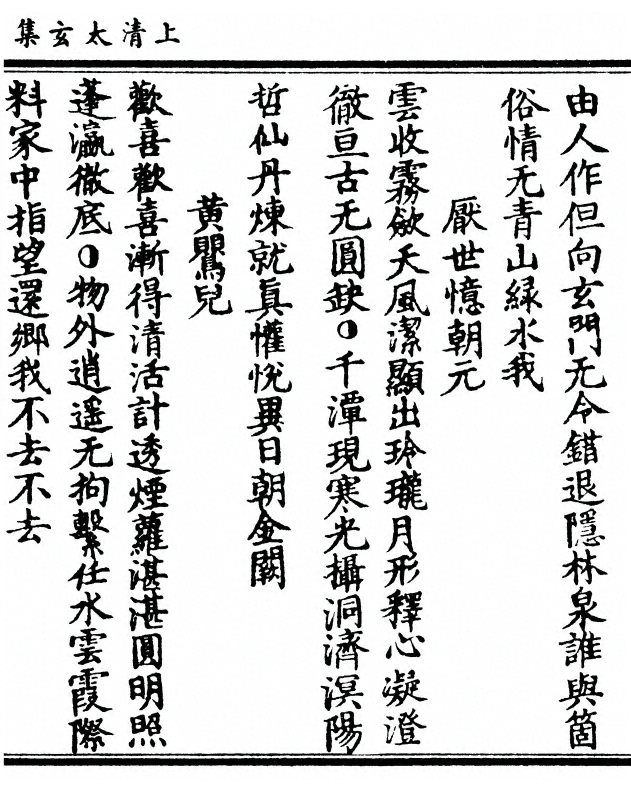 上清太玄集
由人作但向玄門无令錯退隱林泉誰與箇
俗情无青山緑水我
厭世憶朝元
雲收霧歛天風潔顯出玲瓏月形釋心凝澄
徹亘古无圓缺◐千潭現寒光攝洞濟溟陽
哲仙丹煉就真懽悅異日朝金闕
黃鸎兒
歡喜歡喜漸得清活計透煙蘿湛湛圓明照
蓬瀛徹底◐物外逍遥无拘繫任水雲霞際
料家中指望還鄉我不去不去